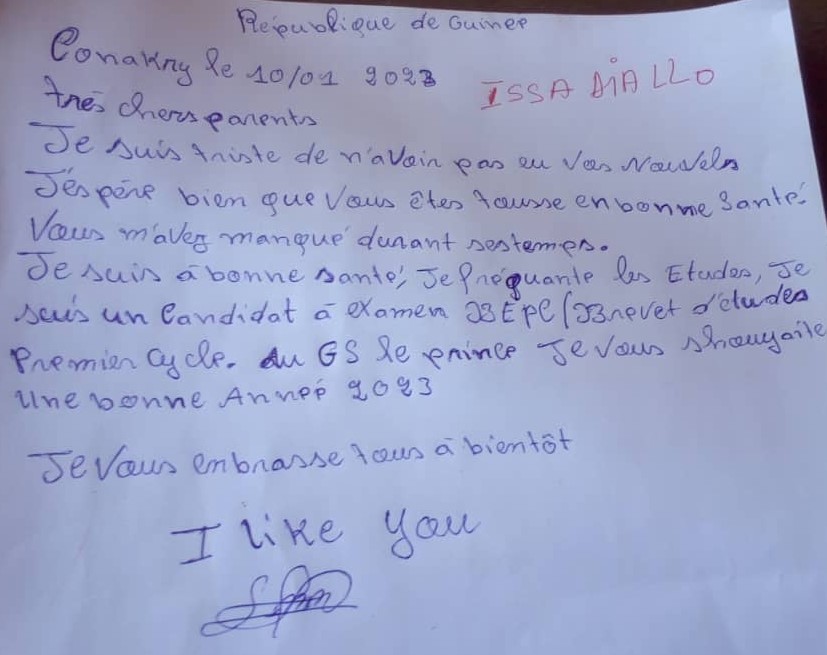 République de Guinee
Conakry le 10/01 2023
ISSA DIALLO
trés chers parents
Je suis triste de n'avoir pas eu Vos Nouvels
J'éspére bien que Vous êtes tousse en bonne Santé.
Vous m'avez manqué durant sestemps.
Je suis à bonne santé, Je fréquante les Etudes, Je
suis un Candidat à examen BEPC/Brevet d'études
Premier Cycle. du GS le prince Je Vous shouyaite
Une bonne Année 2023
Je Vous enbrasse tous à bientôt
I like you